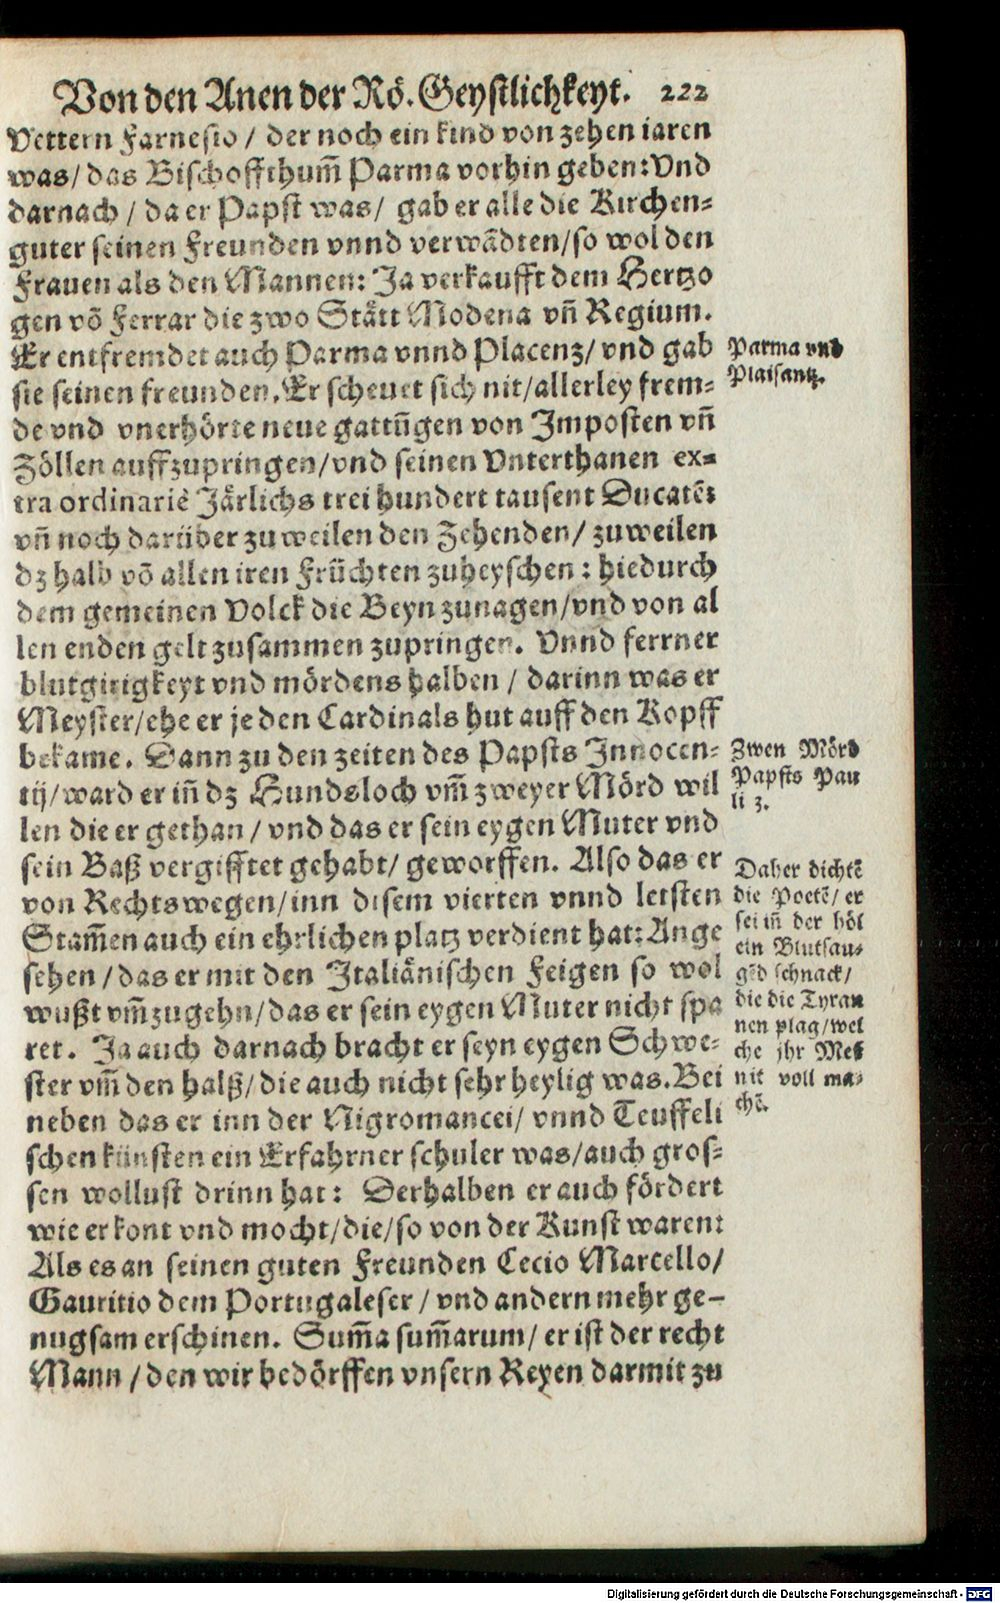 Von den Anen der Rö. Geystlichkeyt. 222
Vettern Farnesio / der noch ein kind von zehen iaren
was / das Bischoffthum̃ Parma vorhin geben: Vnd
darnach / da er Papst was / gab er alle die Kirchen=
guter seinen Freunden vnnd verwãdten / so wol den
Frauen als den Mannen: Ja verkaufft dem Hertzo
gen võ Ferrar die zwo Stätt Modena vñ Regium.
Er entfremdet auch Parma vnnd Placenz / vnd gab
sie seinen freunden. Er scheuet sich nit / allerley frem=
de vnd vnerhörte neue gattũgen von Imposten vñ
Zöllen auffzupringen / vnd seinen Vnterthanen ex=
tra ordinariè Järlichs trei hundert tausent Ducatẽ:
vñ noch darüber zuweilen den Zehenden / zuweilen
dz halb võ allen iren Früchten zuheyschen: hiedurch
dem gemeinen Volck die Beyn zunagen / vnd von al
len enden gelt zusammen zupringen. Vnnd ferrner
blutgirigkeyt vnd mördens halben / darinn was er
Meyster / ehe er je den Cardinals hut auff den Kopff
bekame. Dann zu den zeiten des Papsts Innocen=
tij / ward er iñ dz Hundsloch vm̃ zweyer Mörd wil
len die er gethan / vnd das er sein eygen Muter vnd
sein Baß vergifftet gehabt / geworffen. Also das er
von Rechts wegen / inn disem vierten vnnd letsten
Stam̃en auch ein ehrlichen platz verdient hat: Ange
sehen / das er mit den Italiänischen Feigen so wol
wußt vm̃zugehn / das er sein eygen Muter nicht spa
ret. Ja auch darnach bracht er seyn eygen Schwe=
ster vm̃ den halß / die auch nicht sehr heylig was. Bei
neben das er inn der Nigromancei / vnnd Teuffeli
schen künsten ein Erfahrner schuler was / auch gros=
sen wollust drinn hat: Derhalben er auch fördert
wie er kont vnd mocht / die / so von der Kunst waren:
Als es an seinen guten Freunden Cecio Marcello /
Gauritio dem Portugaleser / vnd andern mehr ge-
nugsam erschinen. Sum̃a sum̃arum / er ist der recht
Mann / den wir bedörffen vnsern Reyen darmit zu
Parma vnd
Plaisantz.
Zwen Mörd
Papsts Pau
li 3.
Daher dichtẽ
die Poetẽ / er
sei iñ der höl
ein Blutsau=
gẽd schnack /
die die Tyran
nen plag / wel
che jhr Mes
nit voll ma=
chẽ.
Digitalisierung gefördert durch die Deutsche Forschungsgemeinschaft - DFG